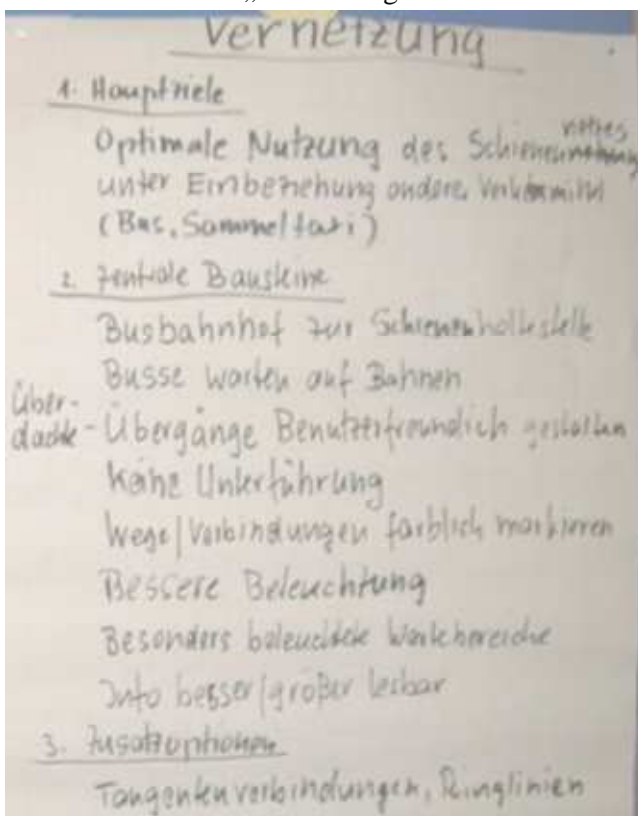 Vernetzung
1. Hauptziele
Optimale Nutzung des Schienennetzes
unter Einbeziehung anderer Verkehrsmittel
(Bus, Sammeltaxi)
2. Zentrale Bausteine
Busbahnhof zur Schienenhaltestelle
Busse warten auf Bahnen
Über-
dachte - Übergänge Benutzerfreundlich gestalten
Keine Unterführung
Wege/Verbindungen farblich markieren
Bessere Beleuchtung
Besonders beleuchtete Wartebereiche
Info besser/größer lesbar
3. Zusatzoptionen
Tangentenverbindungen, Ringlinien